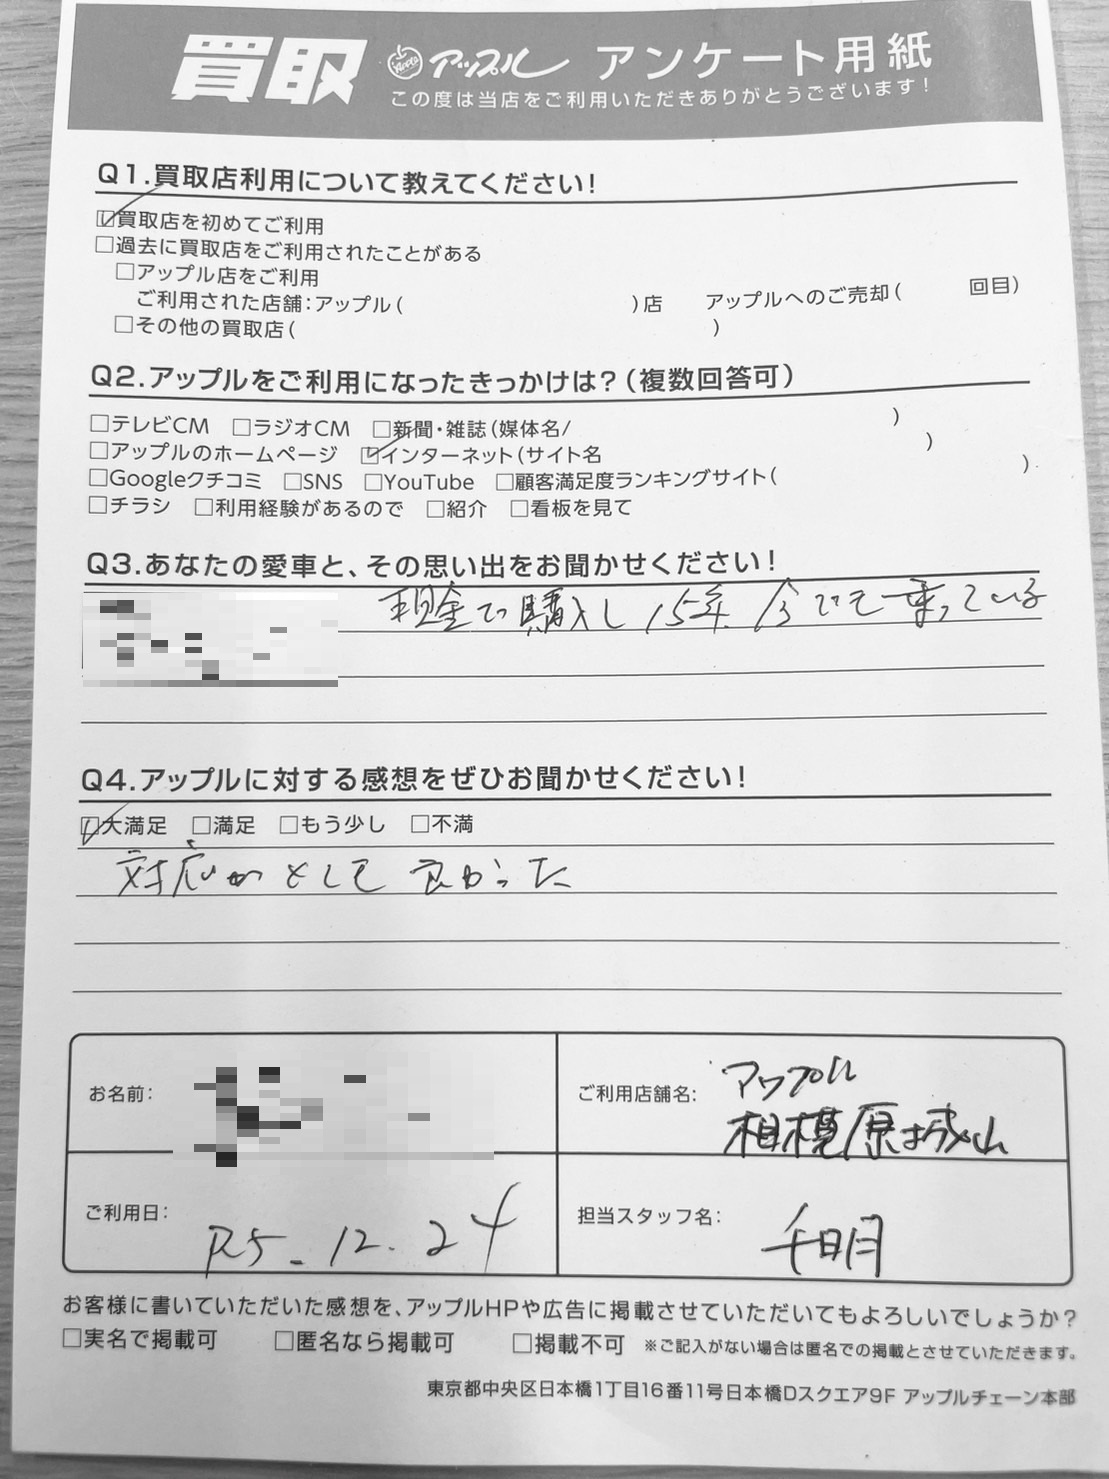 買取 Apple アップル アンケート用紙
この度は当店をご利用いただきありがとうございます!
Q1.買取店利用について教えてください!
☑買取店を初めてご利用
□過去に買取店をご利用されたことがある
□アップル店をご利用
ご利用された店舗:アップル( )店 アップルへのご売却( 回目)
□その他の買取店( )
Q2.アップルをご利用になったきっかけは?(複数回答可)
□テレビCM □ラジオCM □新聞・雑誌(媒体名/ )
□アップルのホームページ ☑インターネット(サイト名 )
□Googleクチコミ □SNS □YouTube □顧客満足度ランキングサイト( )
□チラシ □利用経験があるので □紹介 □看板を見て
Q3.あなたの愛車と、その思い出をお聞かせください!
現金で購入し15年 今でも乗っている
Q4.アップルに対する感想をぜひお聞かせください!
☑大満足 □満足 □もう少し □不満
対応がとても良かった
お名前:
ご利用店舗名: アップル
相模原城山
ご利用日: R5.12.24
担当スタッフ名: 千明
お客様に書いていただいた感想を、アップルHPや広告に掲載させていただいてもよろしいでしょうか?
□実名で掲載可 □匿名なら掲載可 □掲載不可 ※ご記入がない場合は匿名での掲載とさせていただきます。
東京都中央区日本橋1丁目16番11号日本橋Dスクエア9F アップルチェーン本部